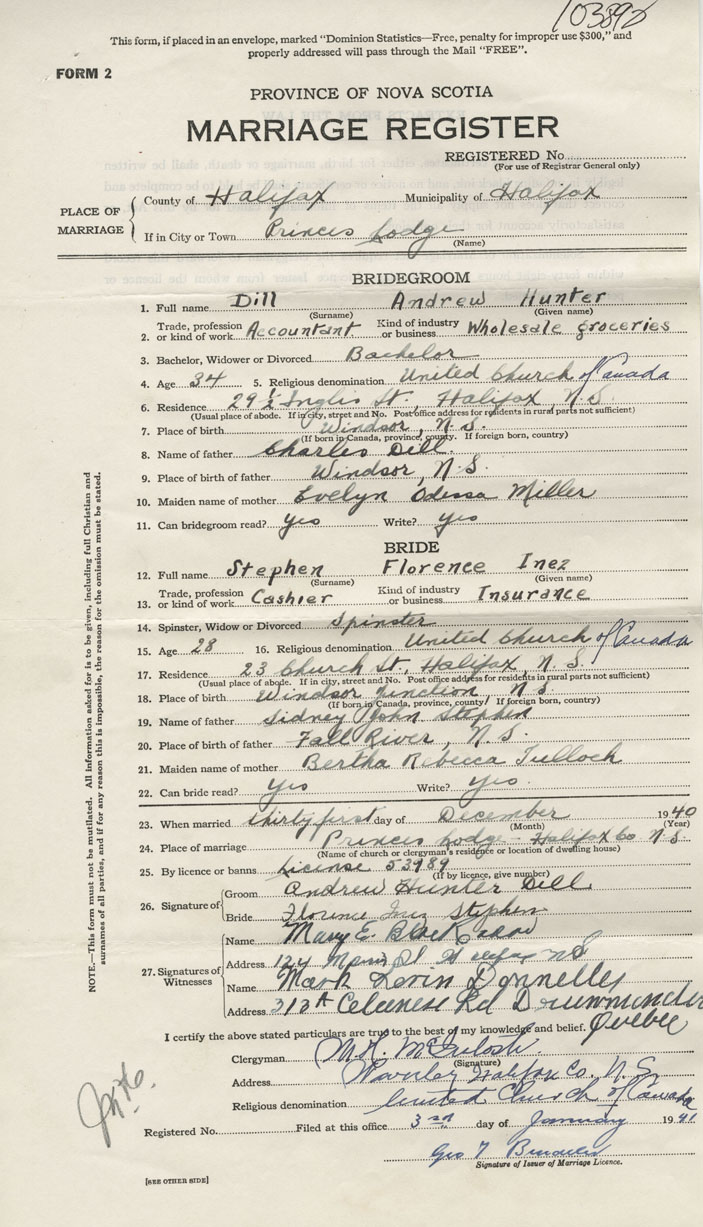 103890
This form, if placed in an envelope, marked "Dominion Statistics—Free, penalty for improper use $300," and
properly addressed will pass through the Mail "FREE".
FORM 2
PROVINCE OF NOVA SCOTIA
MARRIAGE REGISTER
REGISTERED No.
(For use of Registrar General only)
PLACE OF MARRIAGE
County of Halifax Municipality of Halifax
If in City or Town Princes Lodge
(Name)
BRIDEGROOM
1. Full name Dill Andrew Hunter
(Surname) (Given name)
2. Trade, profession or kind of work Accountant Kind of industry or business Wholesale groceries
3. Bachelor, Widower or Divorced Bachelor
4. Age 34 5. Religious denomination United Church of Canada
6. Residence 29½ Inglis St, Halifax, N.S.
(Usual place of abode. If in city, street and No. Post office address for residents in rural parts not sufficient)
7. Place of birth Windsor, N.S.
(If born in Canada, province, county. If foreign born, country)
8. Name of father Charles Dill
9. Place of birth of father Windsor, N.S.
10. Maiden name of mother Evelyn Odessa Miller
11. Can bridegroom read? yes Write? yes
BRIDE
12. Full name Stephen Florence Inez
(Surname) (Given name)
13. Trade, profession or kind of work Cashier Kind of industry or business Insurance
14. Spinster, Widow or Divorced Spinster
15. Age 28 16. Religious denomination United Church of Canada
17. Residence 23 Church St, Halifax, N.S.
(Usual place of abode. If in city, street and No. Post office address for residents in rural parts not sufficient)
18. Place of birth Windsor Junction, N.S.
(If born in Canada, province, county. If foreign born, country)
19. Name of father Sidney John Stephen
20. Place of birth of father Fall River, N.S.
21. Maiden name of mother Bertha Rebecca Tulloch
22. Can bride read? Yes Write? yes
23. When married thirty first day of December 1940
(Month) (Year)
24. Place of marriage Princes Lodge - Halifax Co N.S
(Name of church or clergyman's residence or location of dwelling house)
25. By licence or banns License 53989
(If by licence, give number)
26. Signature of
Groom Andrew Hunter Dill
Bride Florence Inez Stephen
27. Signatures of Witnesses
Name Mary E.
Address 124 St Halifax NS
Name Mark Kevin Donnelly
Address 313A Celanese Rd
Quebec
I certify the above stated particulars are true to the best of my knowledge and belief.
Clergyman
(Signature)
Address Waverley Halifax Co. N.S.
Religious denomination United Church of Canada
Registered No. Filed at this office 3rd day of January 1941
Geo T
Signature of Issuer of Marriage Licence.
[SEE OTHER SIDE]
NOTE.—This form must not be mutilated. All information asked for is to be given, including full Christian and
surnames of all parties, and if for any reason this is impossible, the reason for the omission must be stated.